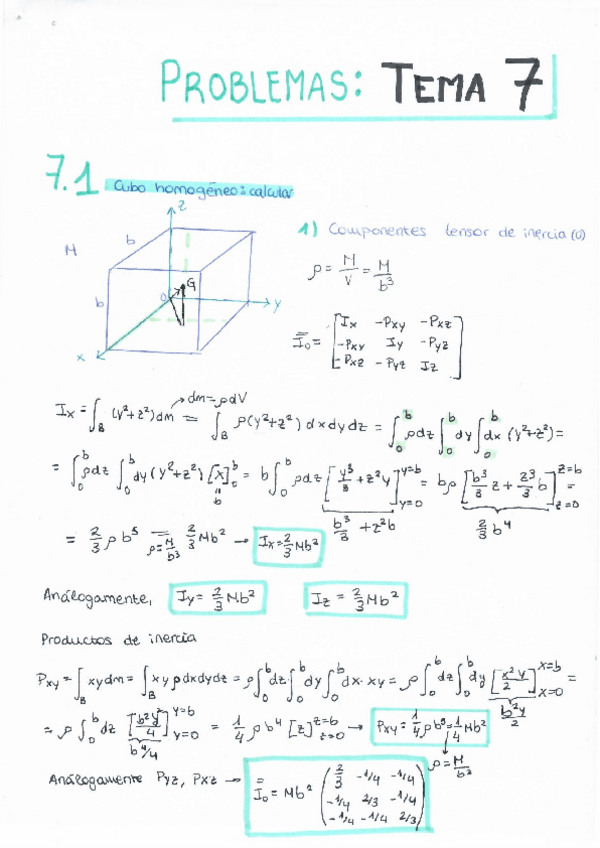 PROBLEMAS: TEMA 7
7.1 Cubo homogéneo: calcular
z
M
b
b
O
G
y
x
1) Componentes tensor de inercia (O)
ρ = M/V = M/b³
I₀ = [Ix -Pxy -Pxz
-Pxy Iy -Pyz
-Pxz -Pyz Iz]
Ix = ∫_B (y²+z²) dm = ∫_B ρ(y²+z²) dxdydz = ∫₀^b ρdz ∫₀^b dy ∫₀^b dx (y²+z²) =
dm = ρdV
= ∫₀^b ρdz ∫₀^b dy (y²+z²) [x]₀^b = b ∫₀^b ρdz [y³/3 + z²y]_{y=0}^{y=b} = bρ [b³/3 z + z³/3 b]_{z=0}^{z=b} =
b
b³/3 + z²b
2/3 b⁴
= 2/3 ρ b⁵ = 2/3 Mb² → Ix = 2/3 Mb²
ρ = M/b³
Análogamente, Iy = 2/3 Mb² Iz = 2/3 Mb²
Productos de inercia
Pxy = ∫_B xydm = ∫_B xy ρdxdydz = ρ ∫₀^b dz ∫₀^b dy ∫₀^b dx · xy = ρ ∫₀^b dz ∫₀^b dy [x²y/2]_{x=0}^{x=b} =
b²y/2
= ρ ∫₀^b dz [b²y²/4]_{y=0}^{y=b} = 1/4 ρ b⁴ [z]_{z=0}^{z=b} → Pxy = 1/4 ρ b⁵ = 1/4 Mb²
b⁴/4
ρ = M/b³
Análogamente Pyz, Pxz → I₀ = Mb² (2/3 -1/4 -1/4
-1/4 2/3 -1/4
-1/4 -1/4 2/3)